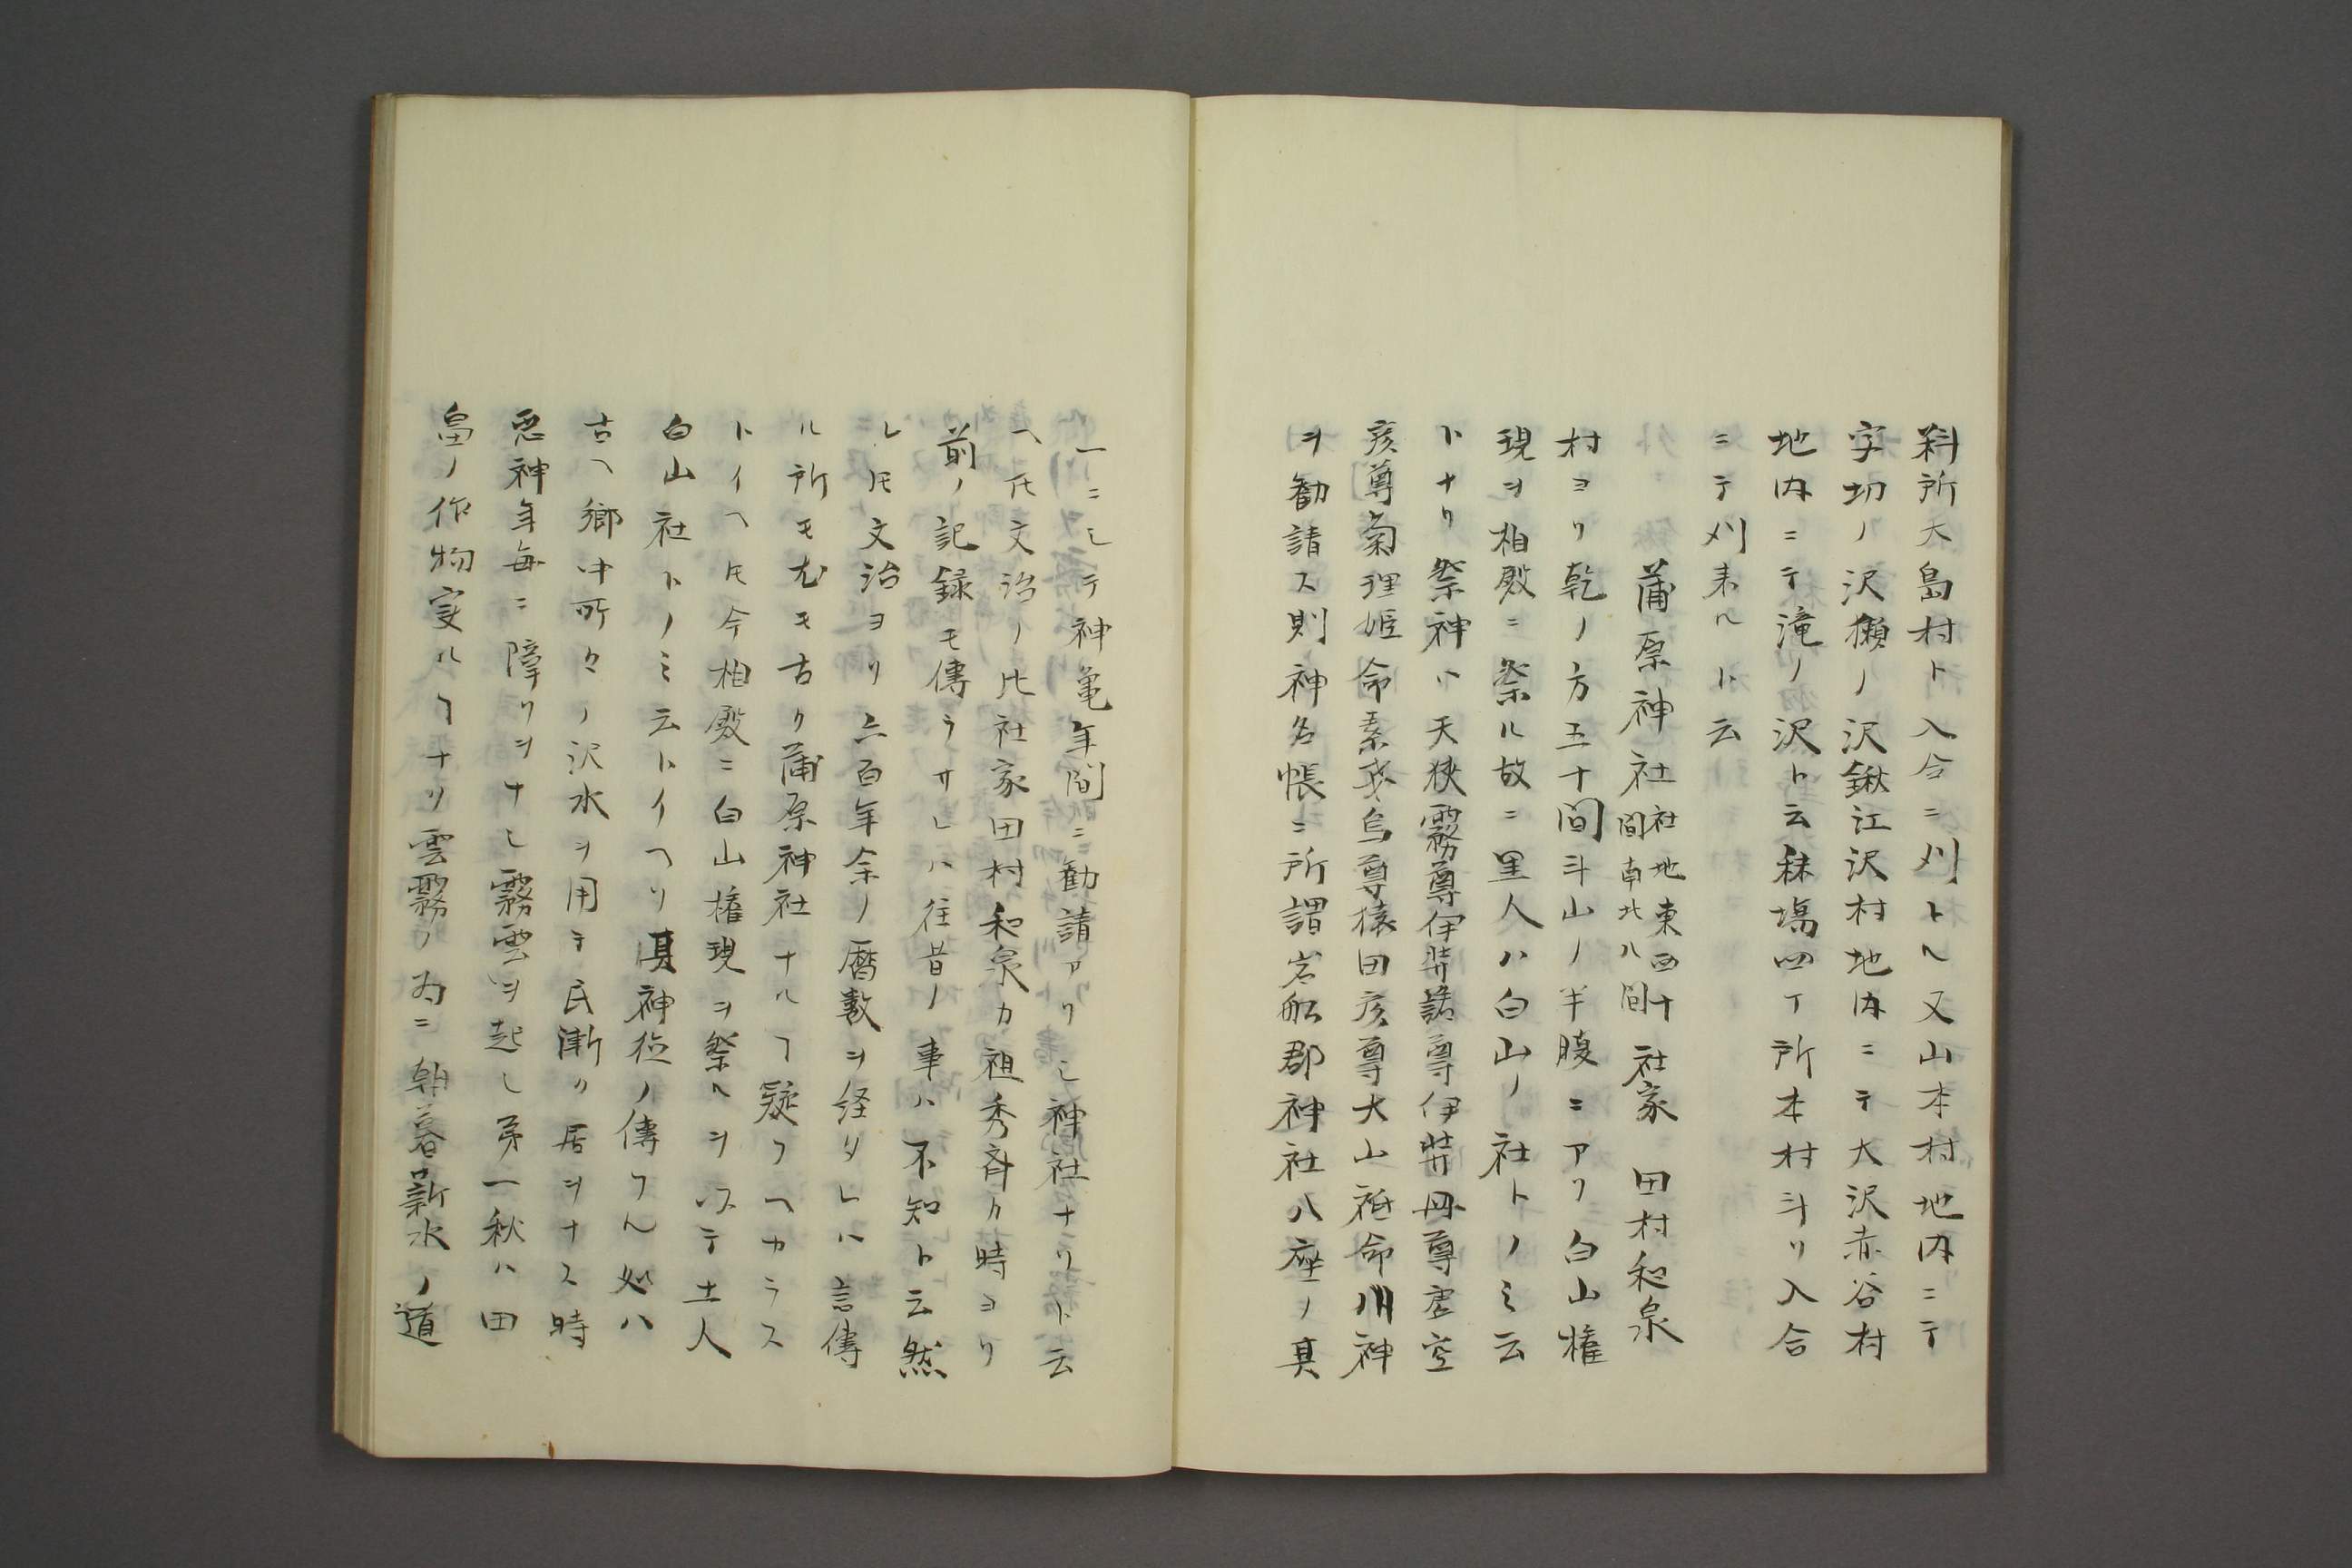 料所大島村ト入合ニ刈トヘ又山本村地内ニテ
字切ノ沢獺ノ沢鍬江沢村地内ニテ大沢赤谷村
地内ニテ滝ノ沢ト云秣場四丁所本村斗リ入合
ニテ刈来ルト云
蒲原神社 社地東西十間南北八間 社家 田村和泉
村ヨリ乾ノ方五十間斗山ノ半腹ニアリ白山権
現ヲ相殿ニ祭ル故ニ里人ハ白山ノ社トノミ云
トナリ祭神ハ天狭霧尊伊弉諾尊伊弉冊尊虚空
彦尊菊理姫命素戔烏尊猿田彦尊大山祗命川神
ヲ勧請ス則神名帳ニ所謂岩船郡神社八座ノ其
一ニシテ神亀年間ニ勧請アリシ神社ナリト云
ヘ𪜈文治ノ比社家田村和泉カ祖秀斉カ時ヨリ
前ノ記録モ傳ラサレハ往昔ノ事ハ不知ト云然
レ𪜈文治ヨリ六百年余ノ暦数ヲ経タレハ言傳
ル所モ尤モ古ク蒲原神社ナルヿ疑フヘカラス
トイヘ𪜈今相殿ニ白山権現ヲ祭ヘヲ以テ土人
白山社トノミ云トイヘリ其神徳ノ傳フル処ハ
古ヘ郷中所々ノ沢水ヲ用テ民漸ク居ヲナス時
悪神年毎ニ障リヲナシ霧雲ヲ起シ第一秋ハ田
畠ノ作物変ルヿナリ雲霧ノ為ニ朝暮薪水ノ道